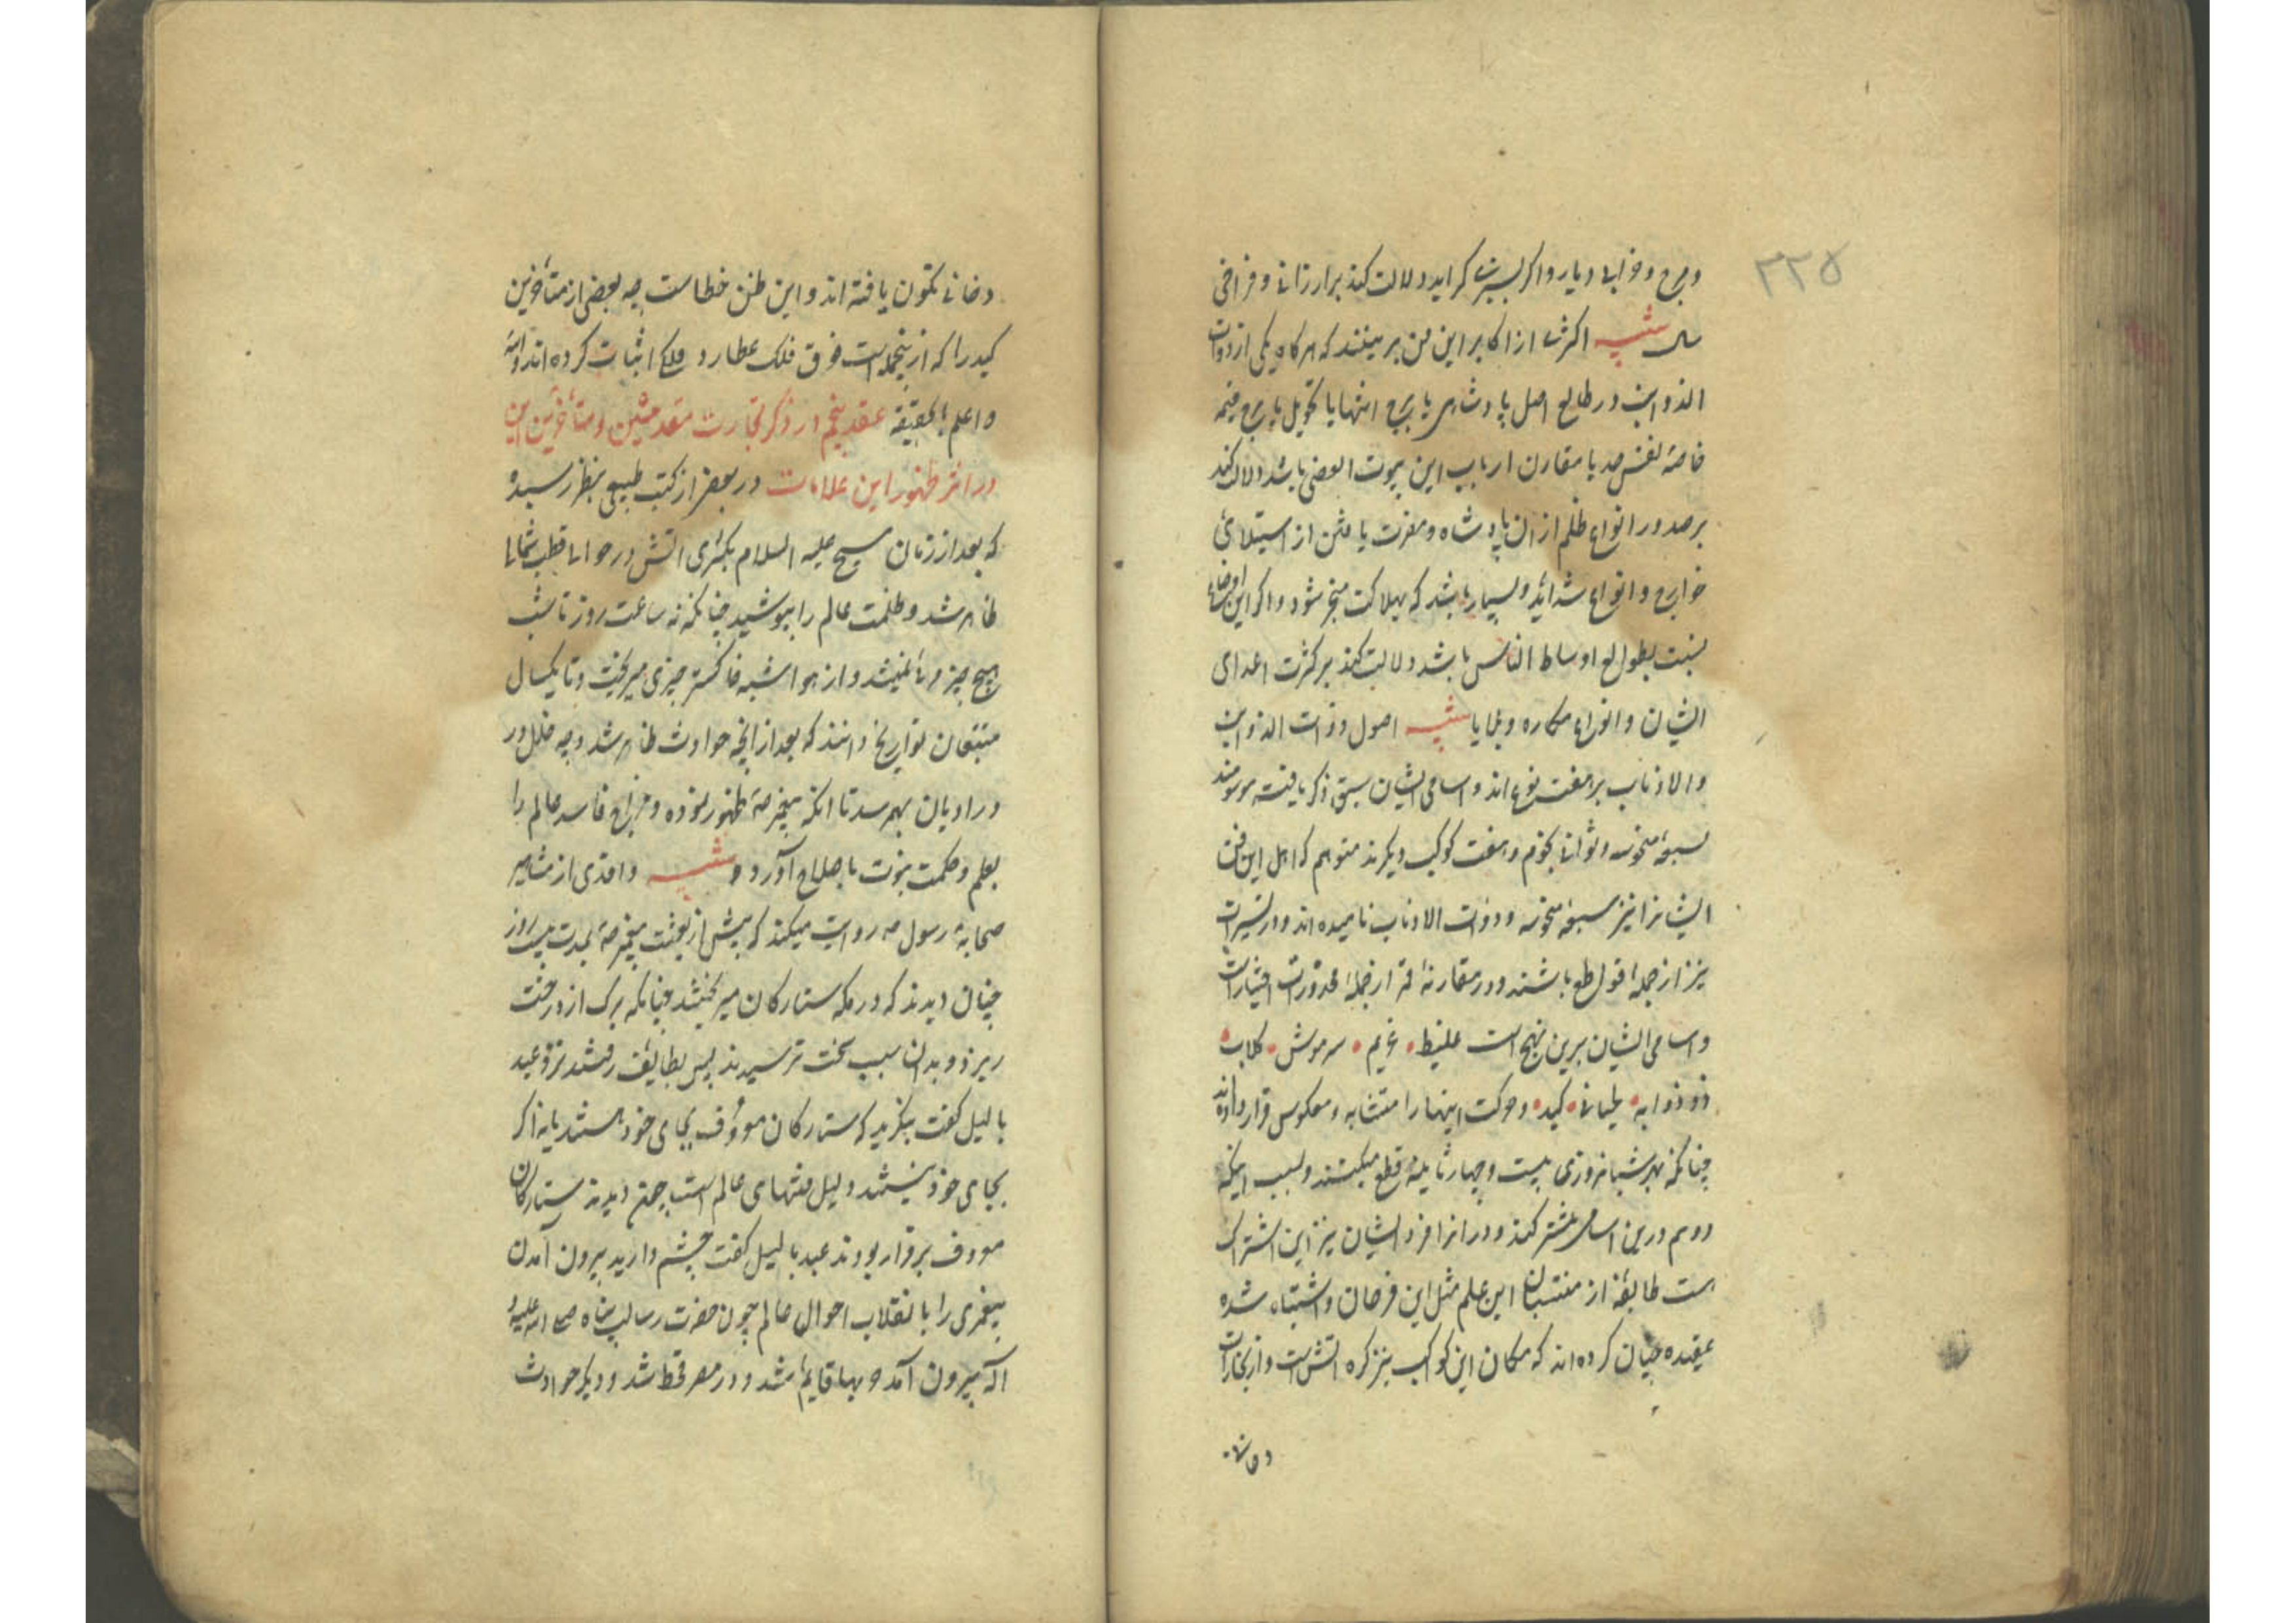 ۲۲۵
و مرج و خرابی دیار و اگر بسیرت گراید دلالت کند بر ارزانی و فراخی
سال تنبیه اکثری از اکابر این فن برینند که هرگاه یکی از ذوات
الذوایب در طالع اصل پادشاهی یا برج انتها یا تحویل یا برج
خاصه بنفس خود یا مقارن ارباب این بیوت العضی باشد دلالت کند
بر صدور انواع ظلم از آن پادشاه و مضرت یافتن از استیلای
خوارج و انواع شداید و بسیار باشد که بهلاکت منجر شود و اگر این اوضاع
نسبت بطوالع اوساط الناس باشد دلالت کند بر کثرت اعدای
ایشان و انواع مکاره و بلایا تنبیه اصول ذوات الذوایب
والاذناب بر هفت نوع اند و اسامی ایشان سبق ذکر یافته موسومند
بسبعه منحوسه و ثوانی نجوم و هفت کوکب دیگرند متوهم که اهل این فن
ایشانرا نیز سبعه منحوسه و ذوات الاذناب نامیده اند و در تسیرات
نیز از جمله قواطع باشند و در مقارنه قمر از جمله محذورات اختیارات
و اسامی ایشان برین نهج است غلیط • غریم • سرموش • کلاب •
ذو ذوابه • لحیانی • کید • و حرکت اینها را متشابه و معکوس قرار داده اند
چنانکه بهر شبانروزی بیست و چهار ثانیه قطع میکنند و بسبب اینکه
دوسم درین اسامی مشترکند و در انزا فرد ایشان نیز این اشتراک
است طایفه از منتسبان این علم مثل این فرحان و اشتباه شده
عقیده چنان کرده اند که مکان این کواکب نیز کره آتش است و از بخارات
دخانی
دخانی تکون یافته اند و این ظن خطاست چه بعضی از متأخرین
کید را که ازینجمله است فوق فلک عطارد فلکی اثبات کرده اند والله
اعلم بالحقیقه عقد پنجم در ذکر تجارت متقدمین و متأخرین این
در اثر ظهور این علامات در بعضی از کتب طبیعی بنظر رسیده
که بعد از زمان مسیح علیه السلام بکثری آتش در حوالی قطب شمالی
ظاهر شد و ظلمت عالم را بپوشید چنانکه نه ساعت روز تا شب
هیچ چیز مرئی نمیشد و از هوا شبیه خاکستر چیزی میریخت و تا یکسال
متتبعان تواریخ دانند که بعد از آن چه حوادث ظاهر شد و چه خلل در
در ادیان بهم رسد تا آنکه پیغمبر ص ظهور نموده و مزاج فاسد عالم را
بعلم و حکمت نبوت باصلاح آورد و تنبیه واقدی از مشاهیر
صحابه رسول ص روایت میکند که پیش از بعثت پیغمبر ص بمدت بیست روز
چنان دیدند که در مکه ستارگان میریختند چنانکه برگ از درخت
ریزد و بدان سبب سخت ترسیدند پس بطایف رفتند نزد عبد
یالیل گفت بنگرید که ستارگان معروف بجای خود هستند یا نه اگر
بجای خود نیستند دلیل منتهای عالم است چون دیدند ستارگان
معروف برقرار بودند عبد یالیل گفت چشم دارید بیرون آمدن
پیغمبری را با انقلاب احوال عالم چون حضرت رسالت پناه صلی الله علیه و
آله بیرون آمد و بهای قایم شد و در مصر قحط شد و دیگر حوادث